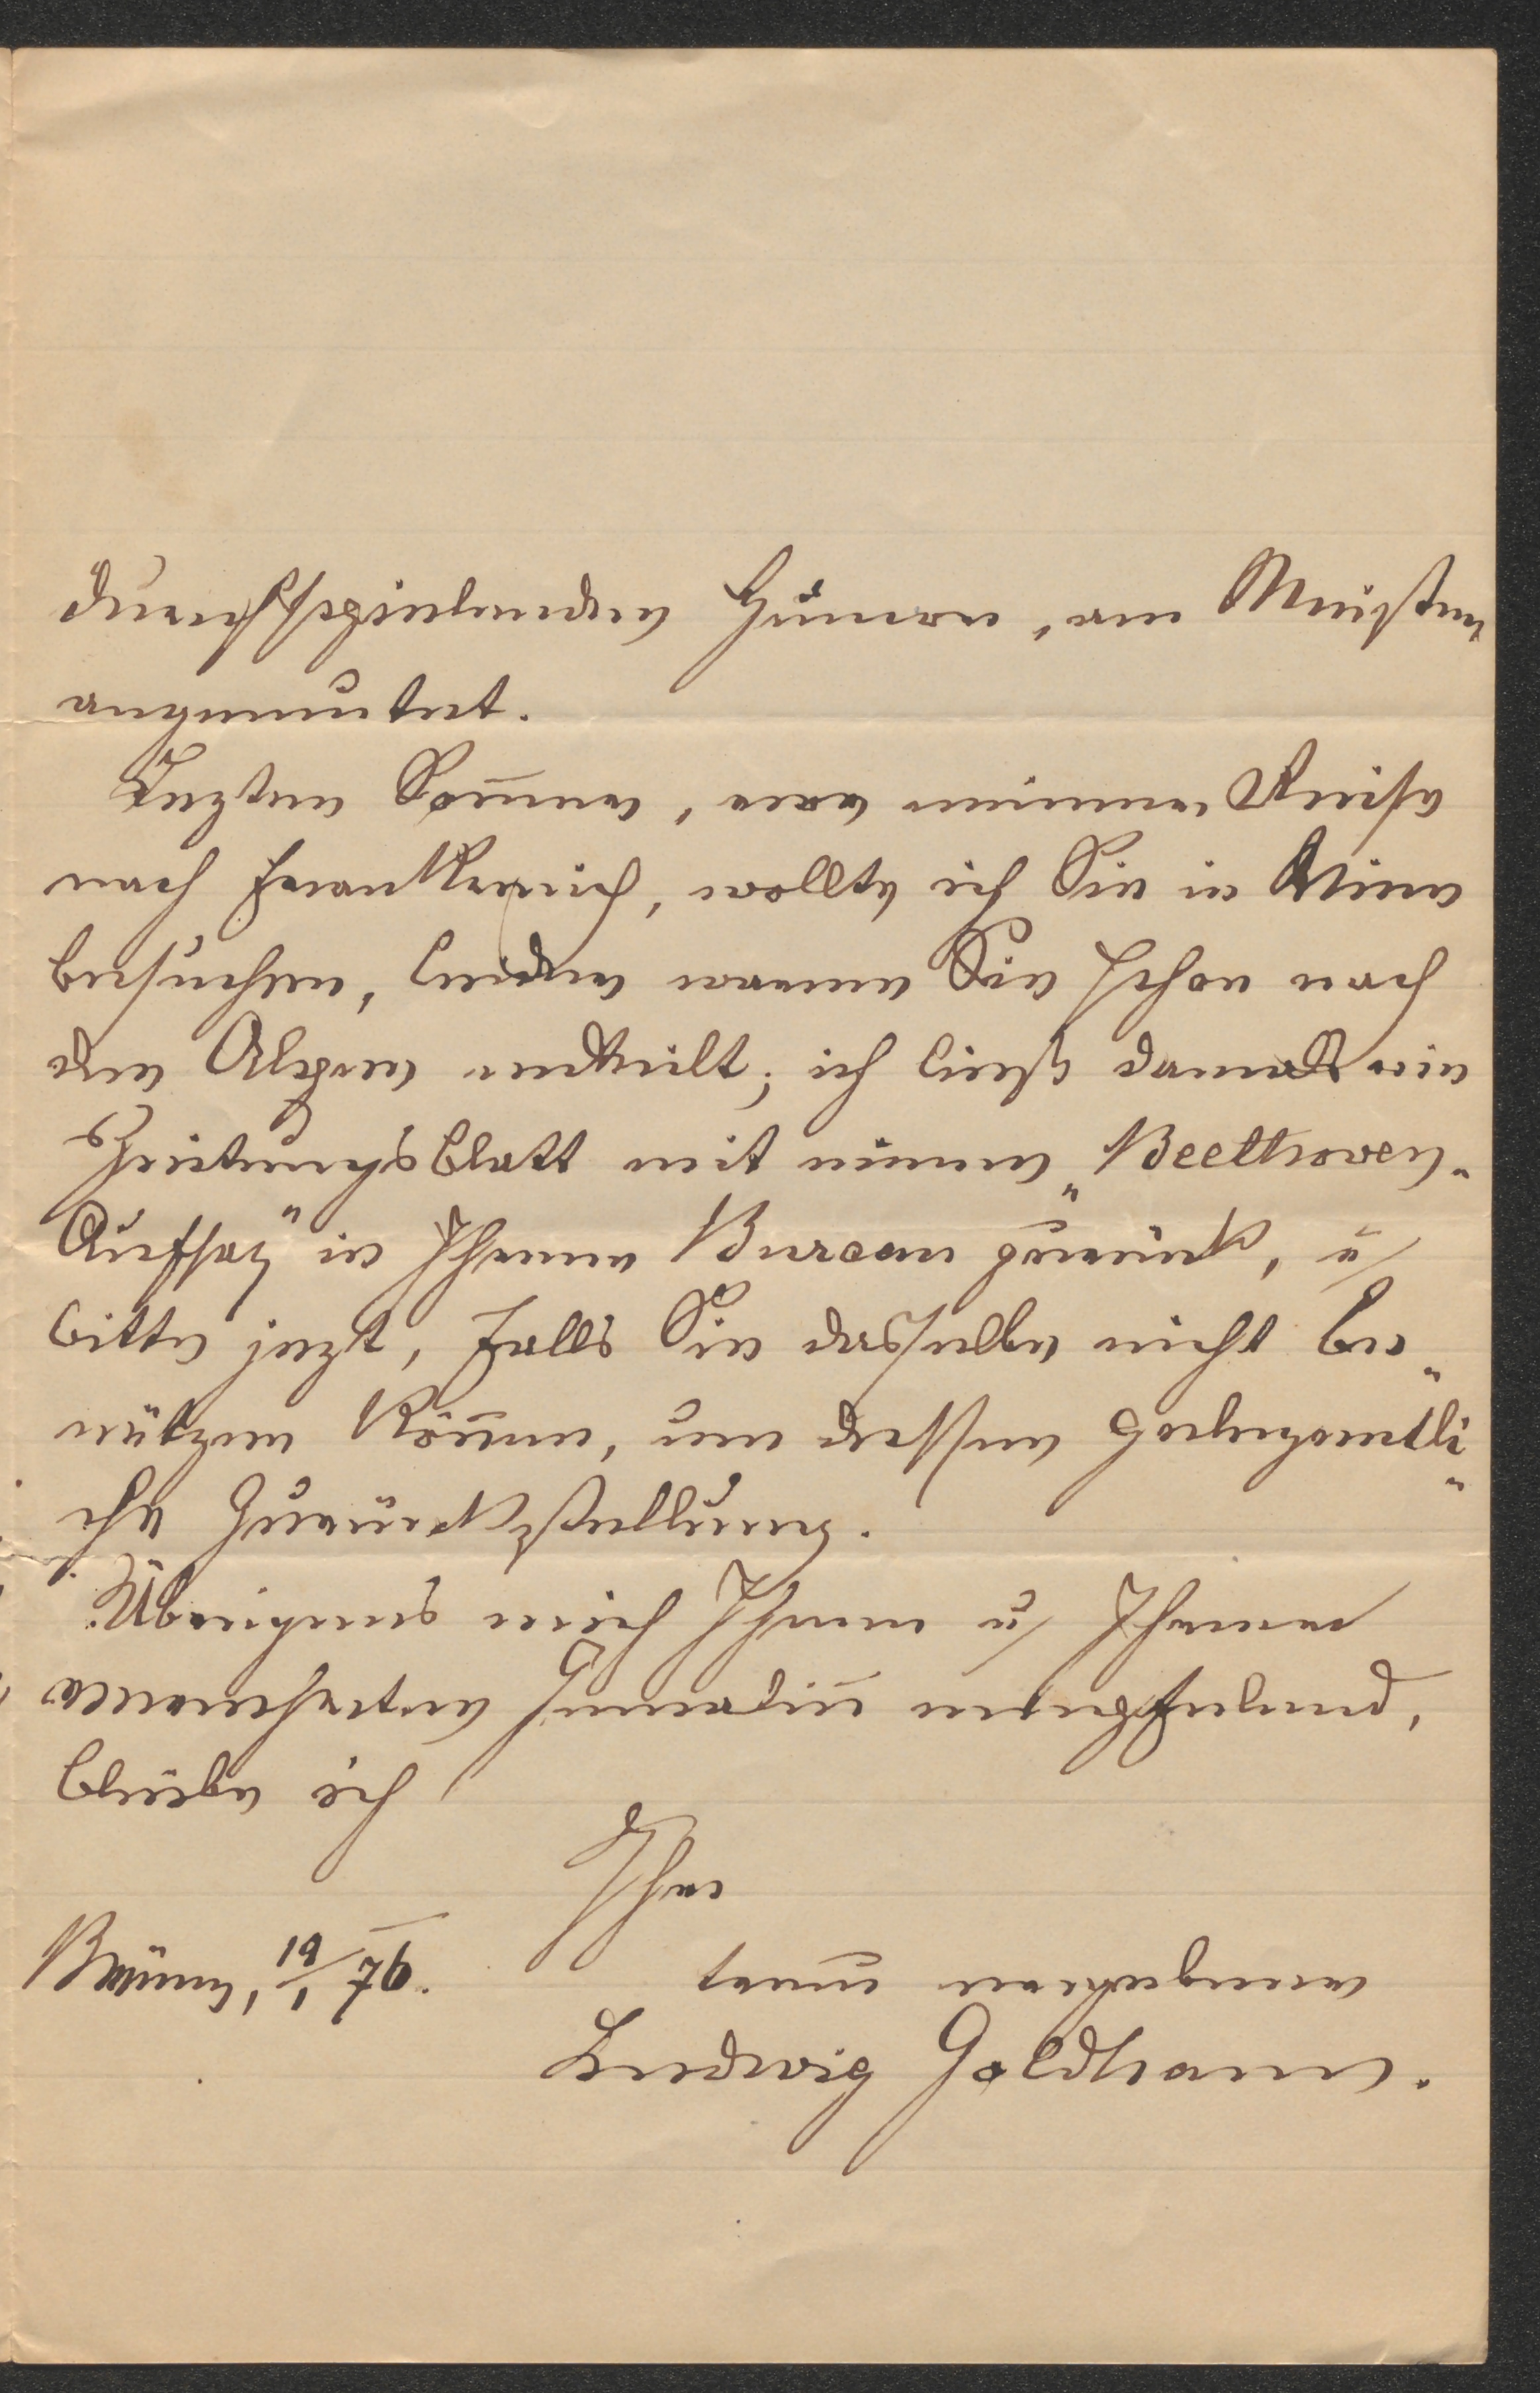 durchspielenden Humor, am Meisten
angemutet.
Lezten Sommer, vor meiner Reise
nach Frankreich, wollte ich Sie in Wien
besuchen, leider waren Sie schon nach
den Alpen enteilt; ich ließ damals ein
Zeitungsblatt mit einem „Beethoven-
Aufsaz" in Ihrem Bureau zurück, u/
bitte jezt, falls Sie dasselbe nicht be„
nützen können, um dessen gelegentli„
che Zurückstellung.
Übrigens mich Ihnen u/ Ihrer
verehrten Gemalin empfelend,
bleibe ich
Ihr
Brünn, 19/1 76.
treu ergebener
Ludwig Goldhann.